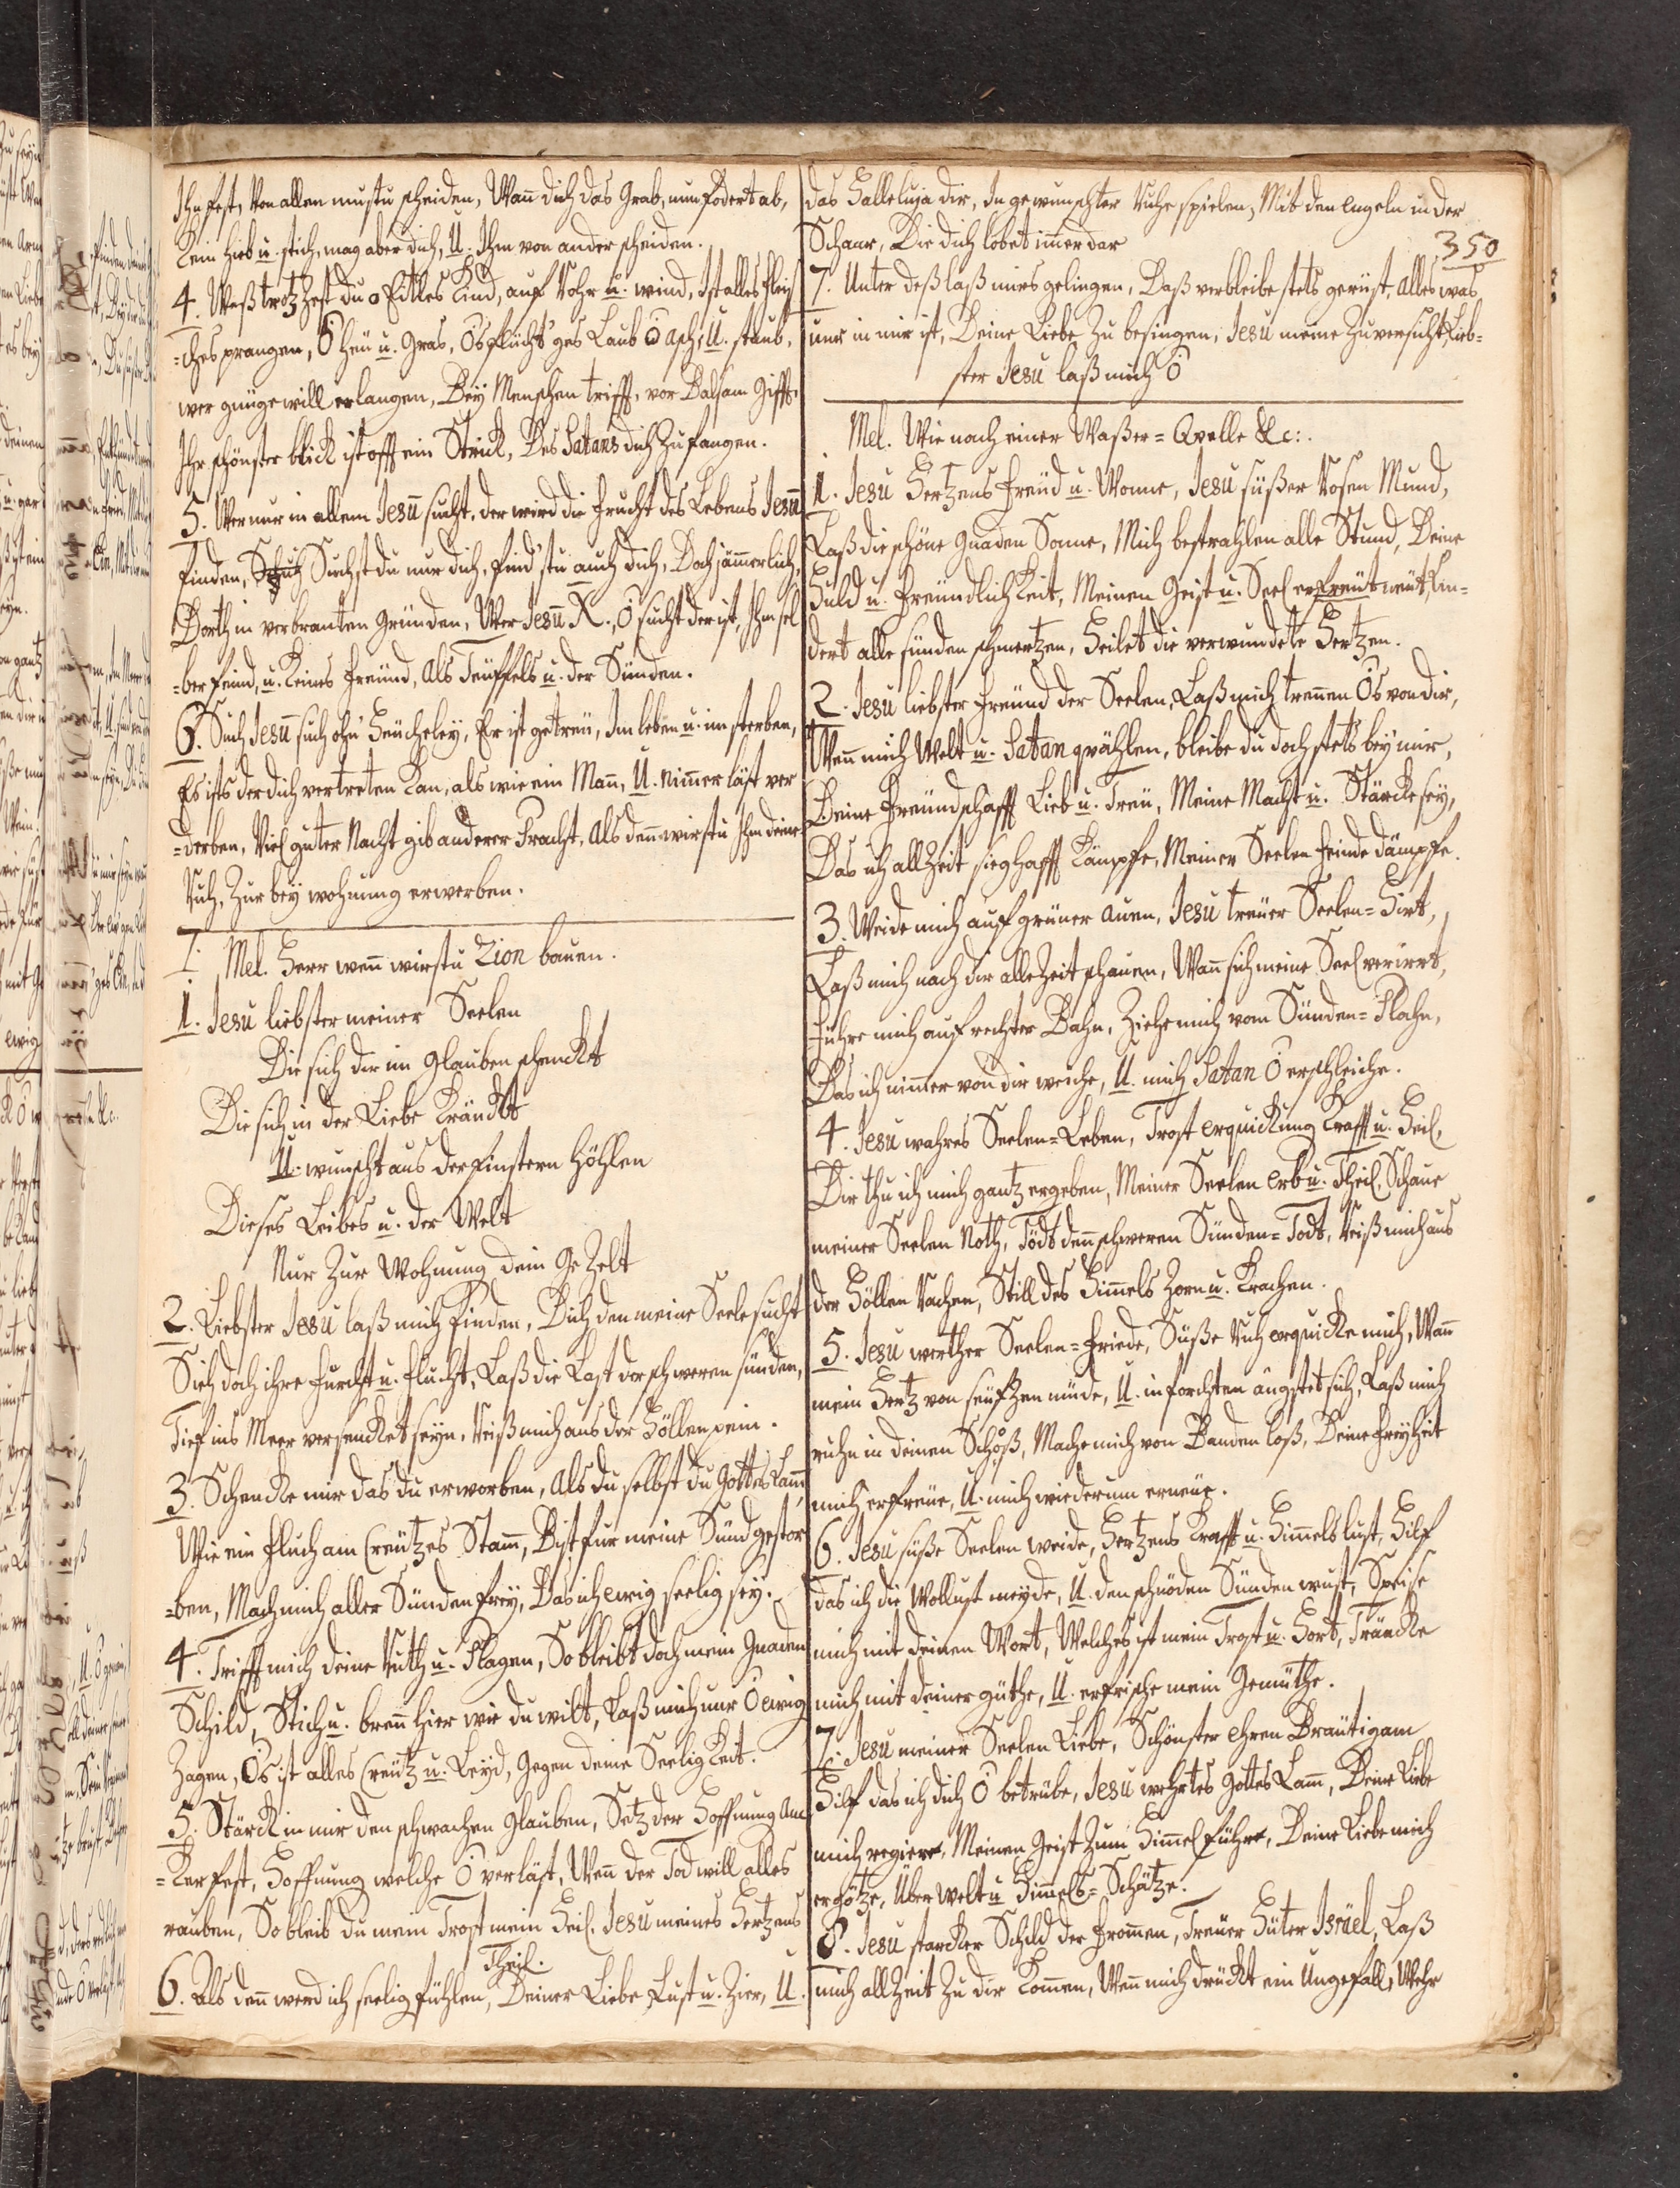 Ihn fest, Von allen mustu scheiden, Wañ dich das Grab, nun fodert ab,
Kein Hieb u. stich, mag aber dich, U. Ihm von ander scheiden.
4. Waß trotzhest du o Eitles Kind, auf Rohr u. wind, Ist alles fleis
=ches prangen, O Heu u. Gras, O's flücht'ges Laub ō asch, U. staub,
wer gnüge will erlangen, Bey Menschen trifft, vor Balsam Gifft,
Ihr schönster blick ist offt ein Strick, Des Satans dich zu fangen.
5. Wer nur in allem Jesū sucht, der wird die Frucht des Lebens Jesū
finden, Suchst du nur dich, find'stu auch dich, Doch jāmerlich,
Dorth in verbranten Gründen, Wer Jesū X., O sucht der ist, Ihm sel
=ber feind, u. keines Freund, als Teuffels u. der Sünden.
6. Such Jesū such ohn' Heucheley, Er ist getreu, Im leben u. im sterben,
Er ists der dich vertreten kan, als wie ein Mañ, U. nimer läst ver
=derben, Viel guter Nacht gib anderer Pracht, Als deñ wirstu Ihm deine
Ruh, Zur bey wohnung erwerben.
7. Mel. Herr weñ wirstu Zion bauen.
1. Jesu liebster meiner Seelen
Die sich dir im Glauben schenckt
Die sich in der Liebe kränckt
U. wünscht aus der finstern Höhlen
Dieses Leibes u. der Welt
Nur Zur Wohnung dein GeZelt
2. Liebster Jesu laß mich finden, Dich den meine Seele sucht
Sieh doch ihre Furcht u. flucht, Laß die Last der schweren sünden,
Tief ins Meer versencket seyn, Reiß mich aus der Höllen pein.
3. Schencke mir das du erworben, Als du selbst du Gottes Lam̄,
Wie ein fluch am Creutzes Stam̄, Bist für meine Sünd gestor
=ben, Mach mich aller Sünden frey, Das ich ewig seelig sey.
4. Trifft mich deine Ruth u. Plagen, So bleibt doch mein Gnaden
Schild, Stich u. breñ hier wie du wilt, Laß mich nur O ewig
Zagen, O's ist alles Creutz u. Leyd, Gegen deine Seeligkeit.
5. Stärck in mir den schwachen Glauben, Setz der Hoffnung An
=ker fest, Hoffnung welche O verläst, Weñ der Tod will alles
rauben, So bleib du mein Trost mein Heil, Jesu meines Hertzens
Theil.
6. Als deñ werd ich seelig fühlen, Deiner Liebe Lust u. Zier, U.
das Halleluja dir, In gewünschter Ruhe spielen, Mit den Engeln in der
Schaar, Die dich lobet im̄er dar
350
7. Unter deß laß mirs gelingen, Daß verbleibe stets gerüst, Alles was
nur in mir ist, Deine Liebe Zu besingen, Jesu meine Zuversicht, Lieb=
ster Jesu laß mich O
Mel. Wie nach einer Waßer=Qvelle &c:.
1. Jesu Hertzens Freud u. Wonne, Jesu süßer Rosen Mund,
Laß die schöne Gnaden Sonne, Mich bestrahlen alle Stund, Deine
Huld u. Freundlichkeit, Meinen Geist u. Seel erfreut, Lin=
dert alle sünden schmertzen, Heilet die verwundete Hertzen.
2. Jesu liebster Freund der Seelen, Laß mich treñen O's von dir,
Weñ mich Welt u. Satan qvählen, bleibe du doch stets bey mir,
Deine Freundschafft Lieb u. Treu, Meine Macht u. Stärcke sey,
Das ich allZeit sieghafft kämpfe, Meiner Seelen Feinde dämpfe.
3. Weide mich auf grüner auen, Jesu treuer Seelen=Hirt,
Laß mich nach dir alleZeit schauen, Wañ sich meine Seel verirrt,
führe mich auf rechter Bahn, Ziehe mich vom Sünden=Plahn,
Das ich nim̄er von dir weiche, U. mich Satan O erschleiche.
4. Jesu wahres Seelen=Leben, Trost erquickung Krafft u. Heil,
Dir thu ich mich gantz ergeben, Meiner Seelen Erb u. Theil, Schaue
meiner Seelen Noth, Tödt deñ schweren Sünden=Todt, Reiß mich aus
der Höllen Rachen, Still des Him̄els Zorn u. Krachen.
5. Jesu werther Seelen=Friede, Süße Ruh erquicke mich, Wañ
mein Hertz von seufzen müde, U. in forchten ängstet sich, Laß mich
ruhn in deinen Schoß, Mache mich von Banden loß, Deine Freyheit
mich erfreue, U. mich wiederum erneue.
6. Jesu süße Seelen weide, Hertzens Krafft u. Him̄els lust, Hilf
das ich die Wollust meyde, U. den schnöden Sünden wust, Speise
mich mit deinen Wort, Welches ist mein Trost u. Hort, Träncke
mich mit deiner güthe, U. erfrische mein Gemüthe.
7. Jesu meiner Seelen Liebe, Schönster Ehren Bräutigam
Hilf das ich dich O betrübe, Jesu wehrtes Gottes Lam̄, Deine Liebe
mich regiere, Meinen Geist Zum Him̄el führe, Deine Liebe mich
ergötze, Über Welt u Him̄els=Schätze.
8. Jesu starcker Schild der From̄en, Treuer Hüter Isräel, Laß
mich allZeit Zu dir kom̄en, Weñ mich drückt ein Ungefäll, Wehr